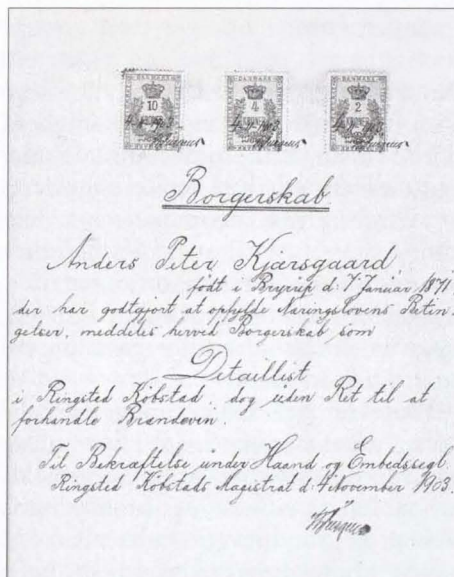 DANMARK DANMARK DANMARK
10 4 2
KRONER KRONER KRONER
Borgerskab
Anders Peter Kjærsgaard
født i Bryrup d. 7 Januar 1871.
der har godtgjort at opfylde Næringslovens Betin-
gelser, meddeles herved Borgerskab som
Detaillist
i Ringsted Købstad, dog uden Ret til at
forhandle Brændevin.
Til Bekræftelse under Haand og Embedssegl.
Ringsted Købstads Magistrat d. 4 November 1903.